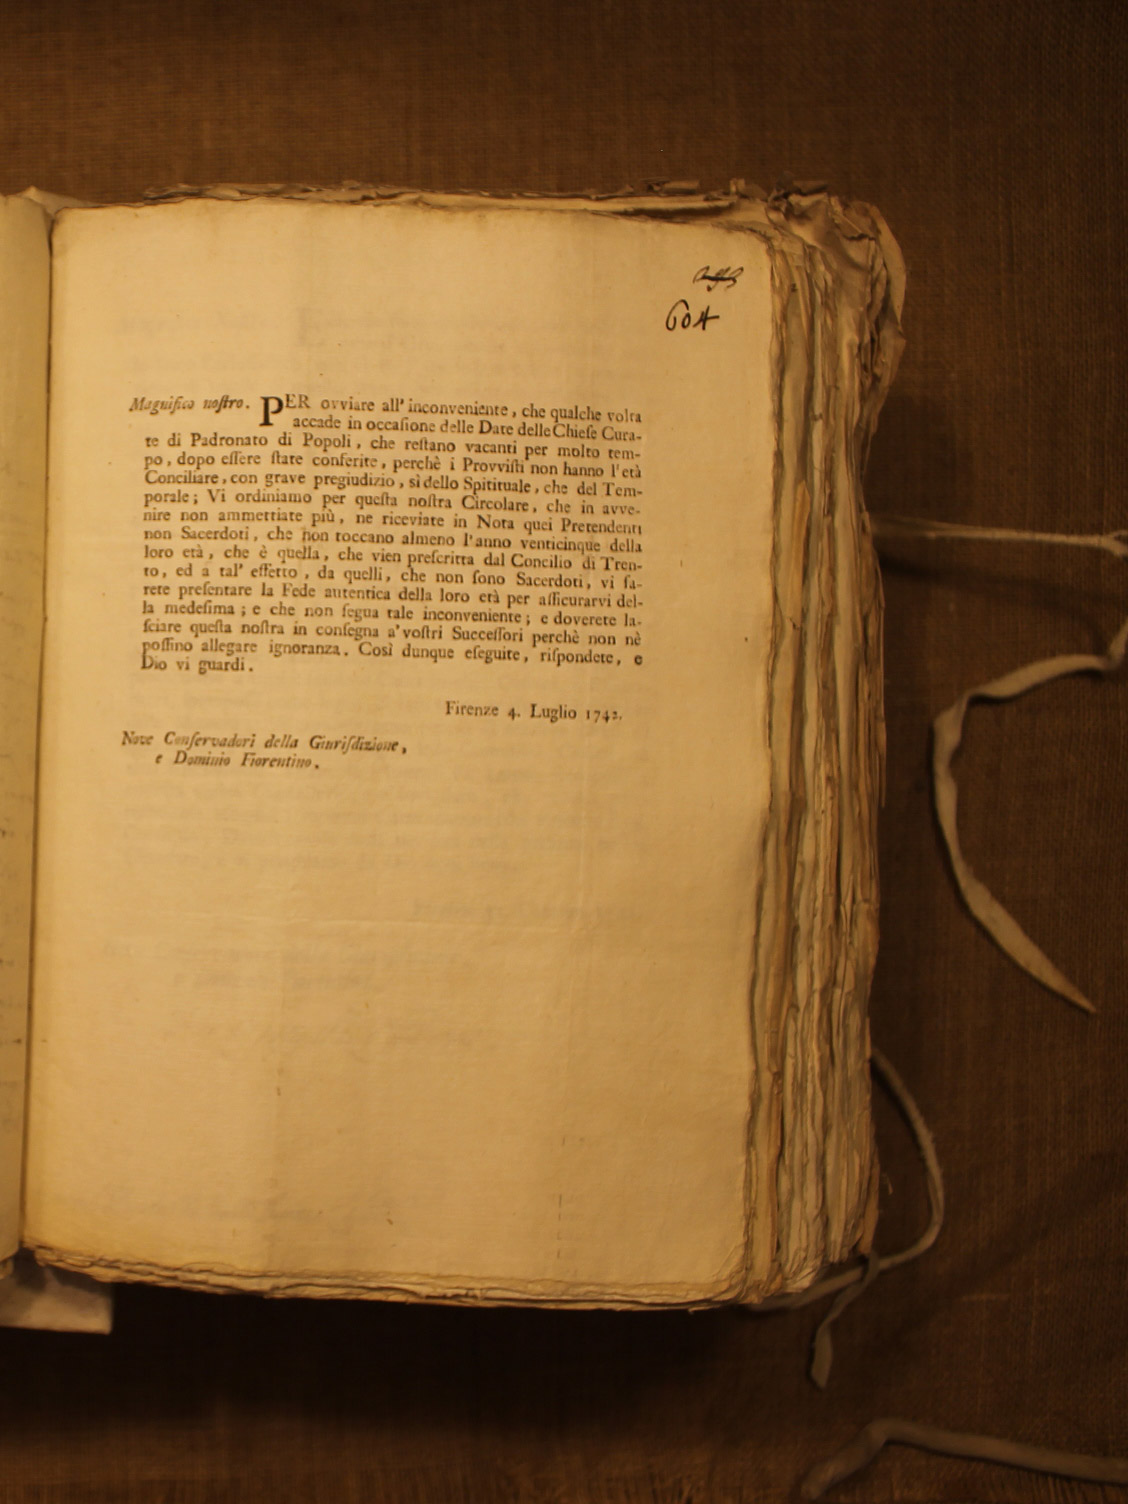 604
Magnifico noſtro. PER ovviare all' inconveniente, che qualche volta
accade in occaſione delle Date delle Chieſe Cura-
te di Padronato di Popoli, che reſtano vacanti per molto tem-
po, dopo eſſere ſtate conferite, perchè i Provviſti non hanno l'età
Conciliare, con grave pregiudizio, sì dello Spitituale, che del Tem-
porale; Vi ordiniamo per queſta noſtra Circolare, che in avve-
nire non ammettiate più, ne riceviate in Nota quei Pretendenti
non Sacerdoti, che non toccano almeno l'anno venticinque della
loro età, che è quella, che vien preſcritta dal Concilio di Tren-
to, ed a tal' effetto, da quelli, che non ſono Sacerdoti, vi fa-
rete preſentare la Fede autentica della loro età per aſſicurarvi del-
la medeſima; e che non ſegua tale inconveniente; e doverete la-
ſciare queſta noſtra in conſegna a' voſtri Succeſſori perchè non nè
poſſino allegare ignoranza. Così dunque eſeguite, riſpondete, e
Dio vi guardi.
Firenze 4. Luglio 1742.
Nove Conſervadori della Giuriſdizione,
e Dominio Fiorentino.